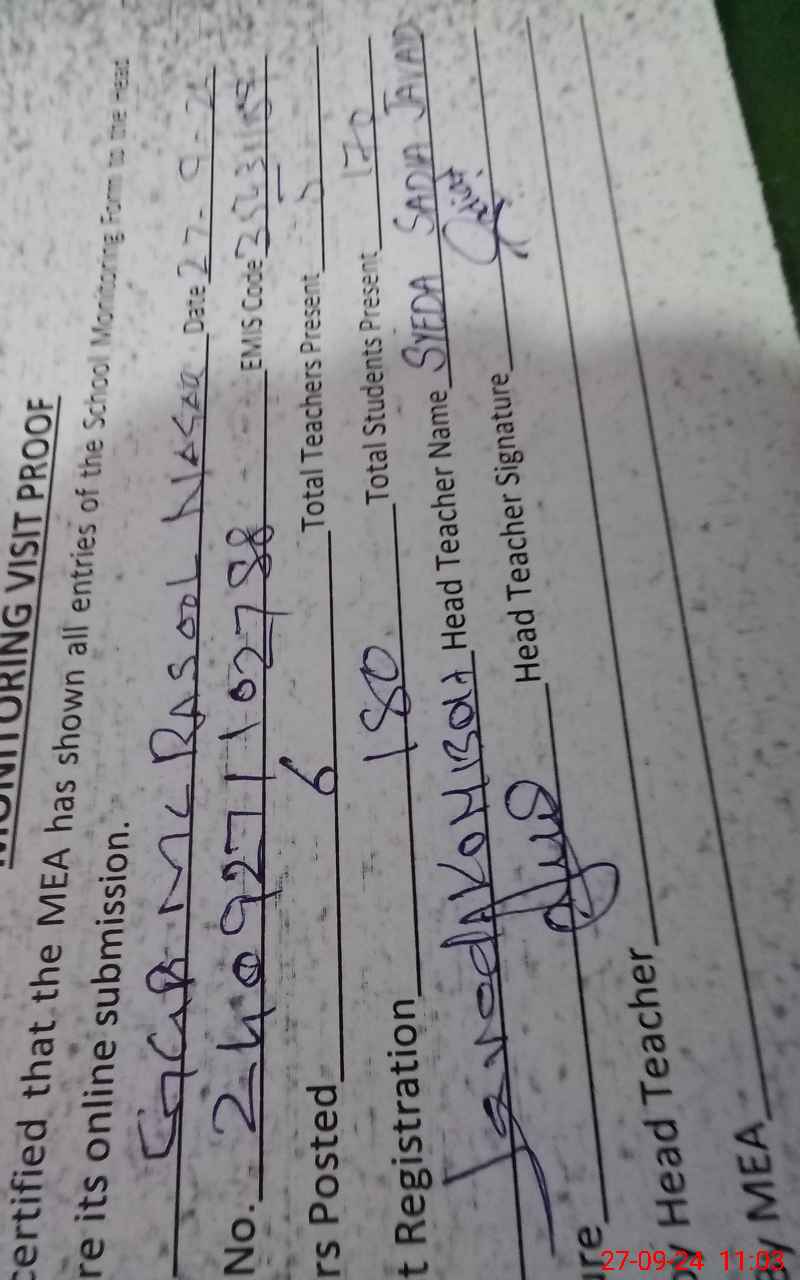 MONITORING VISIT PROOF
certified that the MEA has shown all entries of the School Monitoring Form to the Head
re its online submission.
RASOOL NAGAR Date 27-9-24
No. 2409271102788 EMIS Code
rs Posted 6 Total Teachers Present
t Registration 180 Total Students Present 170
Head Teacher Name SYEDA SADIA JAVAID
ure Head Teacher Signature
y Head Teacher
y MEA
27-09-24 11:03